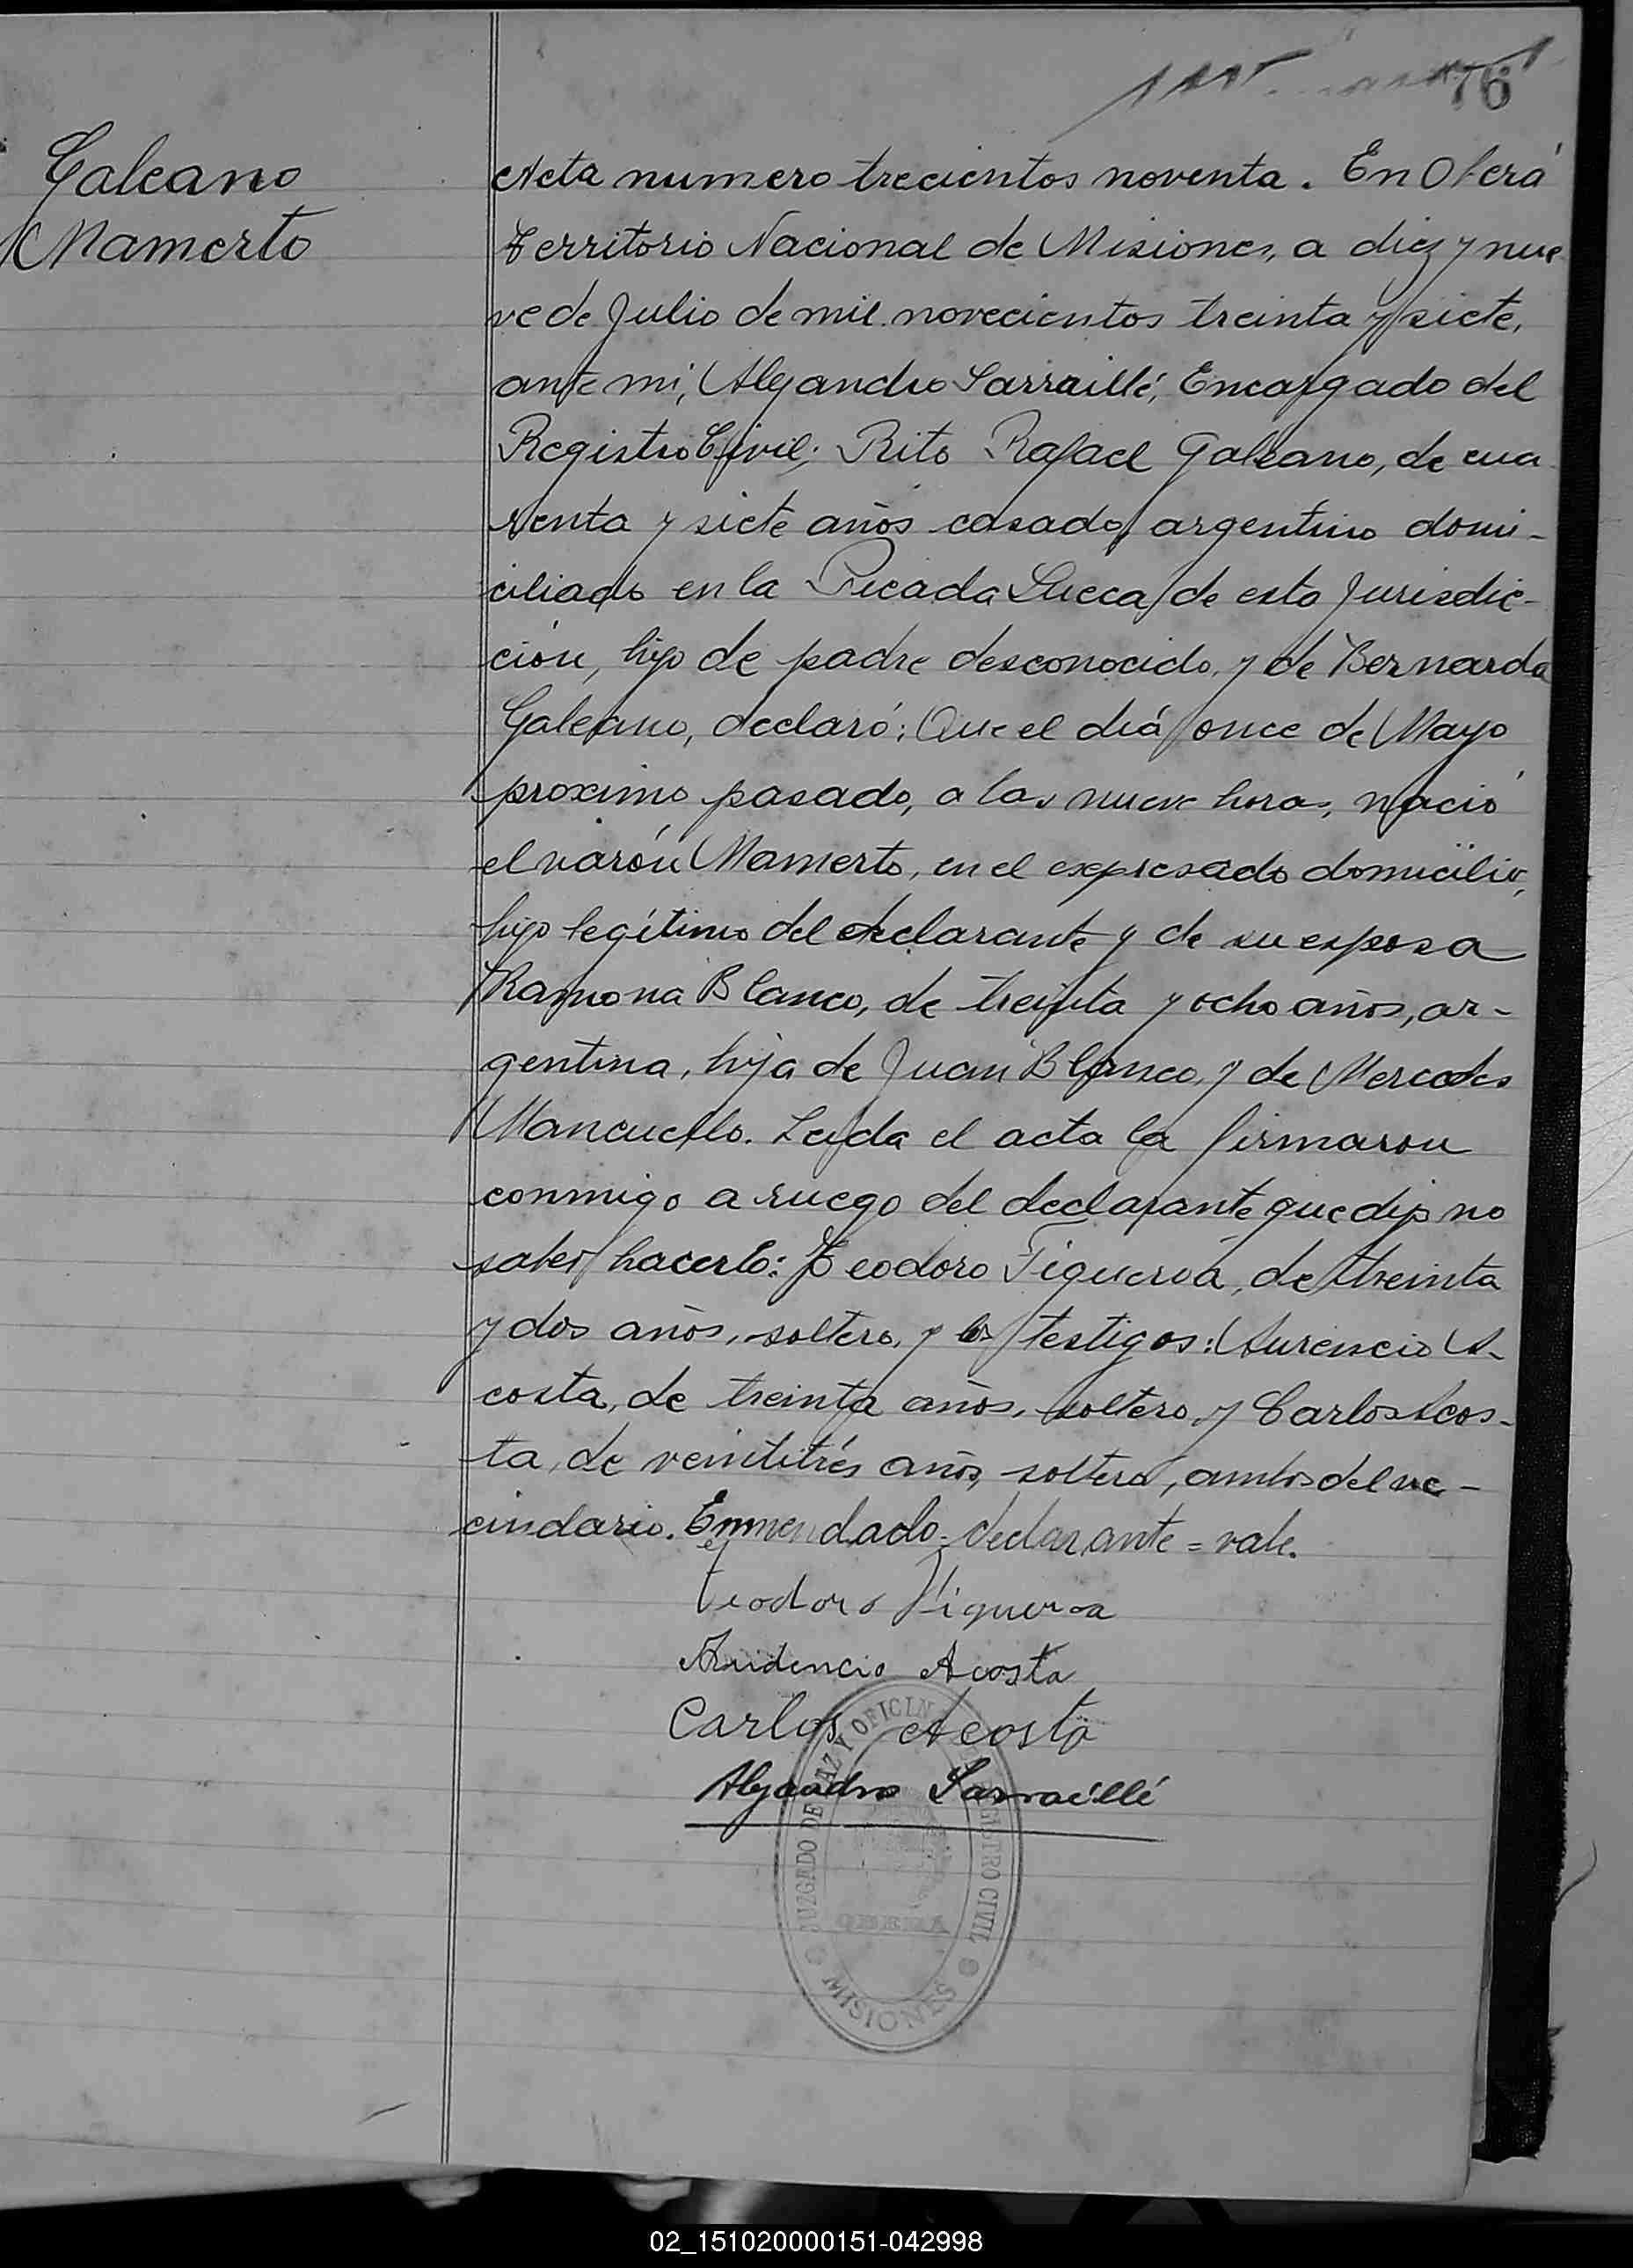 76
Galeano
Mamerto
Acta numero trecientos noventa. En Oberá
Territorio Nacional de Misiones, a diez y nue
ve de Julio de mil novecientos treinta y siete,
ante mi, Alejandro Sarraillé, Encargado del
Registro Civil; Rito Rafael Galeano, de cua
renta y siete años casado, argentino domi-
ciliado en la Picada Sueca, de esta Jurisdic-
ción, hijo de padre desconocido, y de Bernarda
Galeano, declaró: Que el diá once de Mayo
proximo pasado, a las nueve horas, nació
el varón Mamerto, en el expresado domicilio,
hijo legítimo del declarante y de su esposa
Ramona Blanco, de treinta y ocho años, ar-
gentina, hija de Juan Blanco, y de Mercedes
Mancuello. Leida el acta la firmaron
conmigo a ruego del declarante que dijo no
saber hacerlo: Teodoro Figueroa, de treinta
y dos años, soltero, y los testigos: A-
costa, de treinta años, soltero, y Carlos Acos-
ta, de veintitrés años, soltero, ambos del ve-
cindario. Enmendado = declarante = vale.
Teodoro Figueroa
Acosta
Carlos Acosta
Alejandro Sarraillé
JUZGADO DE PAZ Y OFICINA REGISTRO CIVIL
OBERA
MISIONES
02_151020000151-042998